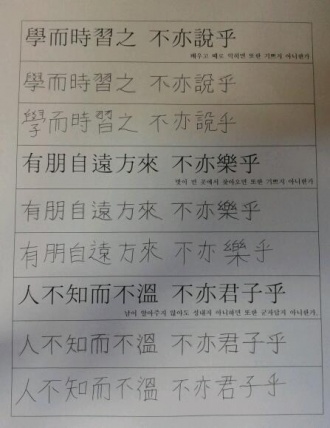 學而時習之 不亦說乎
배우고 때로 익히면 또한 기쁘지 아니한가
學而時習之 不亦說乎
學而時習之 不亦說乎
有朋自遠方來 不亦樂乎
벗이 먼 곳에서 찾아오면 또한 기쁘지 아니한가
有朋自遠方來 不亦樂乎
有朋自遠方來 不亦樂乎
人不知而不溫 不亦君子乎
남이 알아주지 않아도 성내지 아니하면 또한 군자답지 아니한가
人不知而不溫 不亦君子乎
人不知而不溫 不亦君子乎